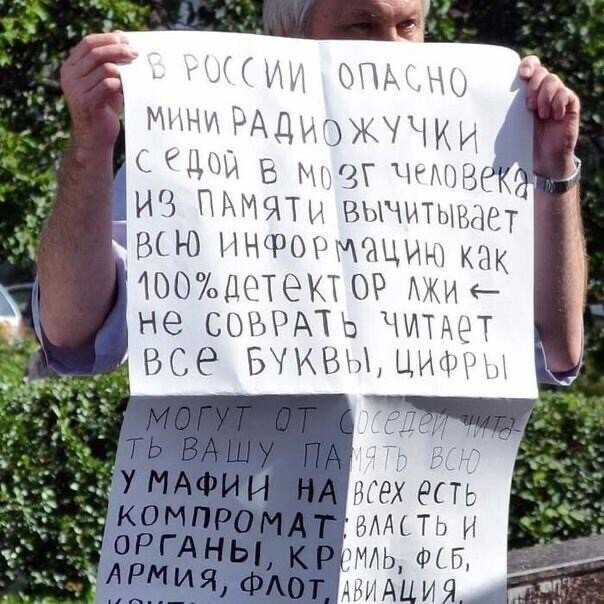 В РОССИИ ОПАСНО
МИНИ РАДИОЖУЧКИ
С ЕДОЙ В МОЗГ ЧЕЛОВЕКА
ИЗ ПАМЯТИ ВЫЧИТЫВАЕТ
ВСЮ ИНФОРМАЦИЮ КАК
100% ДЕТЕКТОР ЛЖИ ←
НЕ СОВРАТЬ ЧИТАЕТ
ВСЕ БУКВЫ, ЦИФРЫ
МОГУТ ОТ СОСЕДЕЙ ЧИТА-
ТЬ ВАШУ ПАМЯТЬ ВСЮ
У МАФИИ НА ВСЕХ ЕСТЬ
КОМПРОМАТ: ВЛАСТЬ И
ОРГАНЫ, КРЕМЛЬ, ФСБ,
АРМИЯ, ФЛОТ, АВИАЦИЯ,